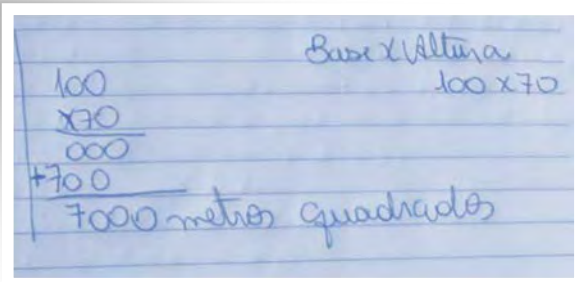 Base x Altura
100 x 70
100
x70
000
+700
7000 metros quadrados